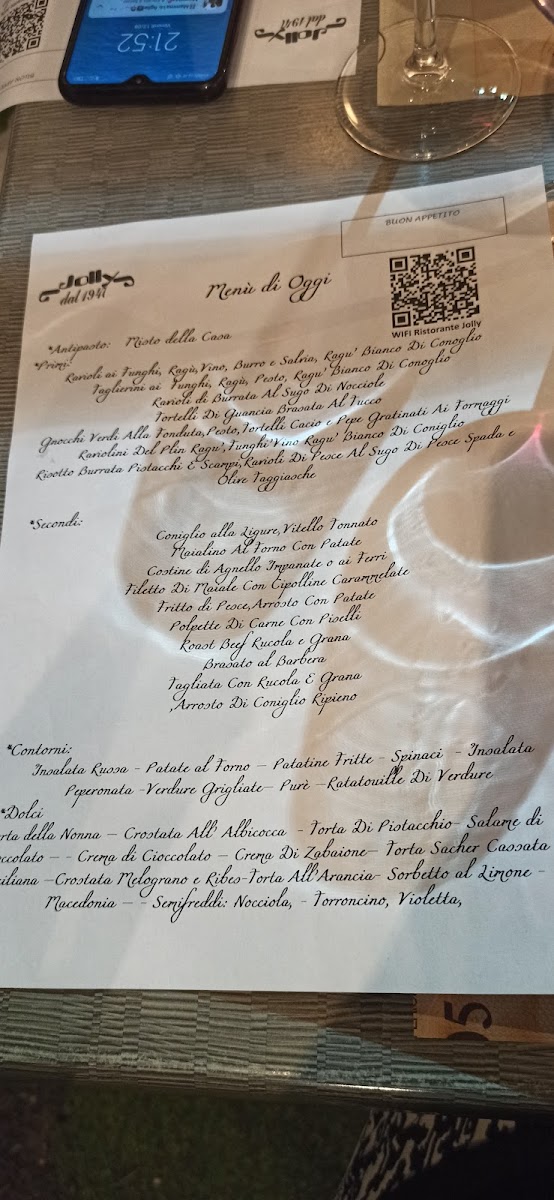 21:52
Jolly
dal 1941
BUON APPETITO
Jolly
dal 1941
Menù di Oggi
WiFi Ristorante Jolly
*Antipasto: Misto della Casa
*Primi:
Ravioli ai Funghi, Ragù, Vino, Burro e Salvia, Ragu' Bianco Di Conoglio
Taglierini ai Funghi, Ragù, Pesto, Ragu' Bianco Di Conoglio
Ravioli di Burrata Al Sugo Di Nocciole
Tortelli Di Guancia Brasata Al Tucco
Gnocchi Verdi Alla Fonduta,Pesto,Tortelli Cacio e Pepe Gratinati Ai Formaggi
Raviolini Del Plin Ragu',Funghi'Vino Ragu' Bianco Di Coniglio
Risotto Burrata Pistacchi E Scampi,Ravioli Di Pesce Al Sugo Di Pesce Spada e
Olive Taggiasche
*Secondi:
Coniglio alla Ligure,Vitello Tonnato
Maialino Al Forno Con Patate
Costine di Agnello Impanate o ai Ferri
Filetto Di Maiale Con Cipolline Caramellate
Fritto di Pesce,Arrosto Con Patate
Polpette Di Carne Con Piselli
Roast Beef Rucola e Grana
Brasato al Barbera
Tagliata Con Rucola E Grana
,Arrosto Di Coniglio Ripieno
*Contorni:
Insalata Russa - Patate al Forno – Patatine Fritte - Spinaci - Insalata
Peperonata -Verdure Grigliate– Purè –Ratatouille Di Verdure
*Dolci
rta della Nonna – Crostata All' Albicocca - Torta Di Pistacchio– Salame di
ccolato – - Crema di Cioccolato – Crema Di Zabaione– Torta Sacher Cassata
iliana –Crostata Melograno e Ribes-Torta All'Arancia- Sorbetto al Limone -
Macedonia – - Semifreddi: Nocciola, - Torroncino, Violetta,